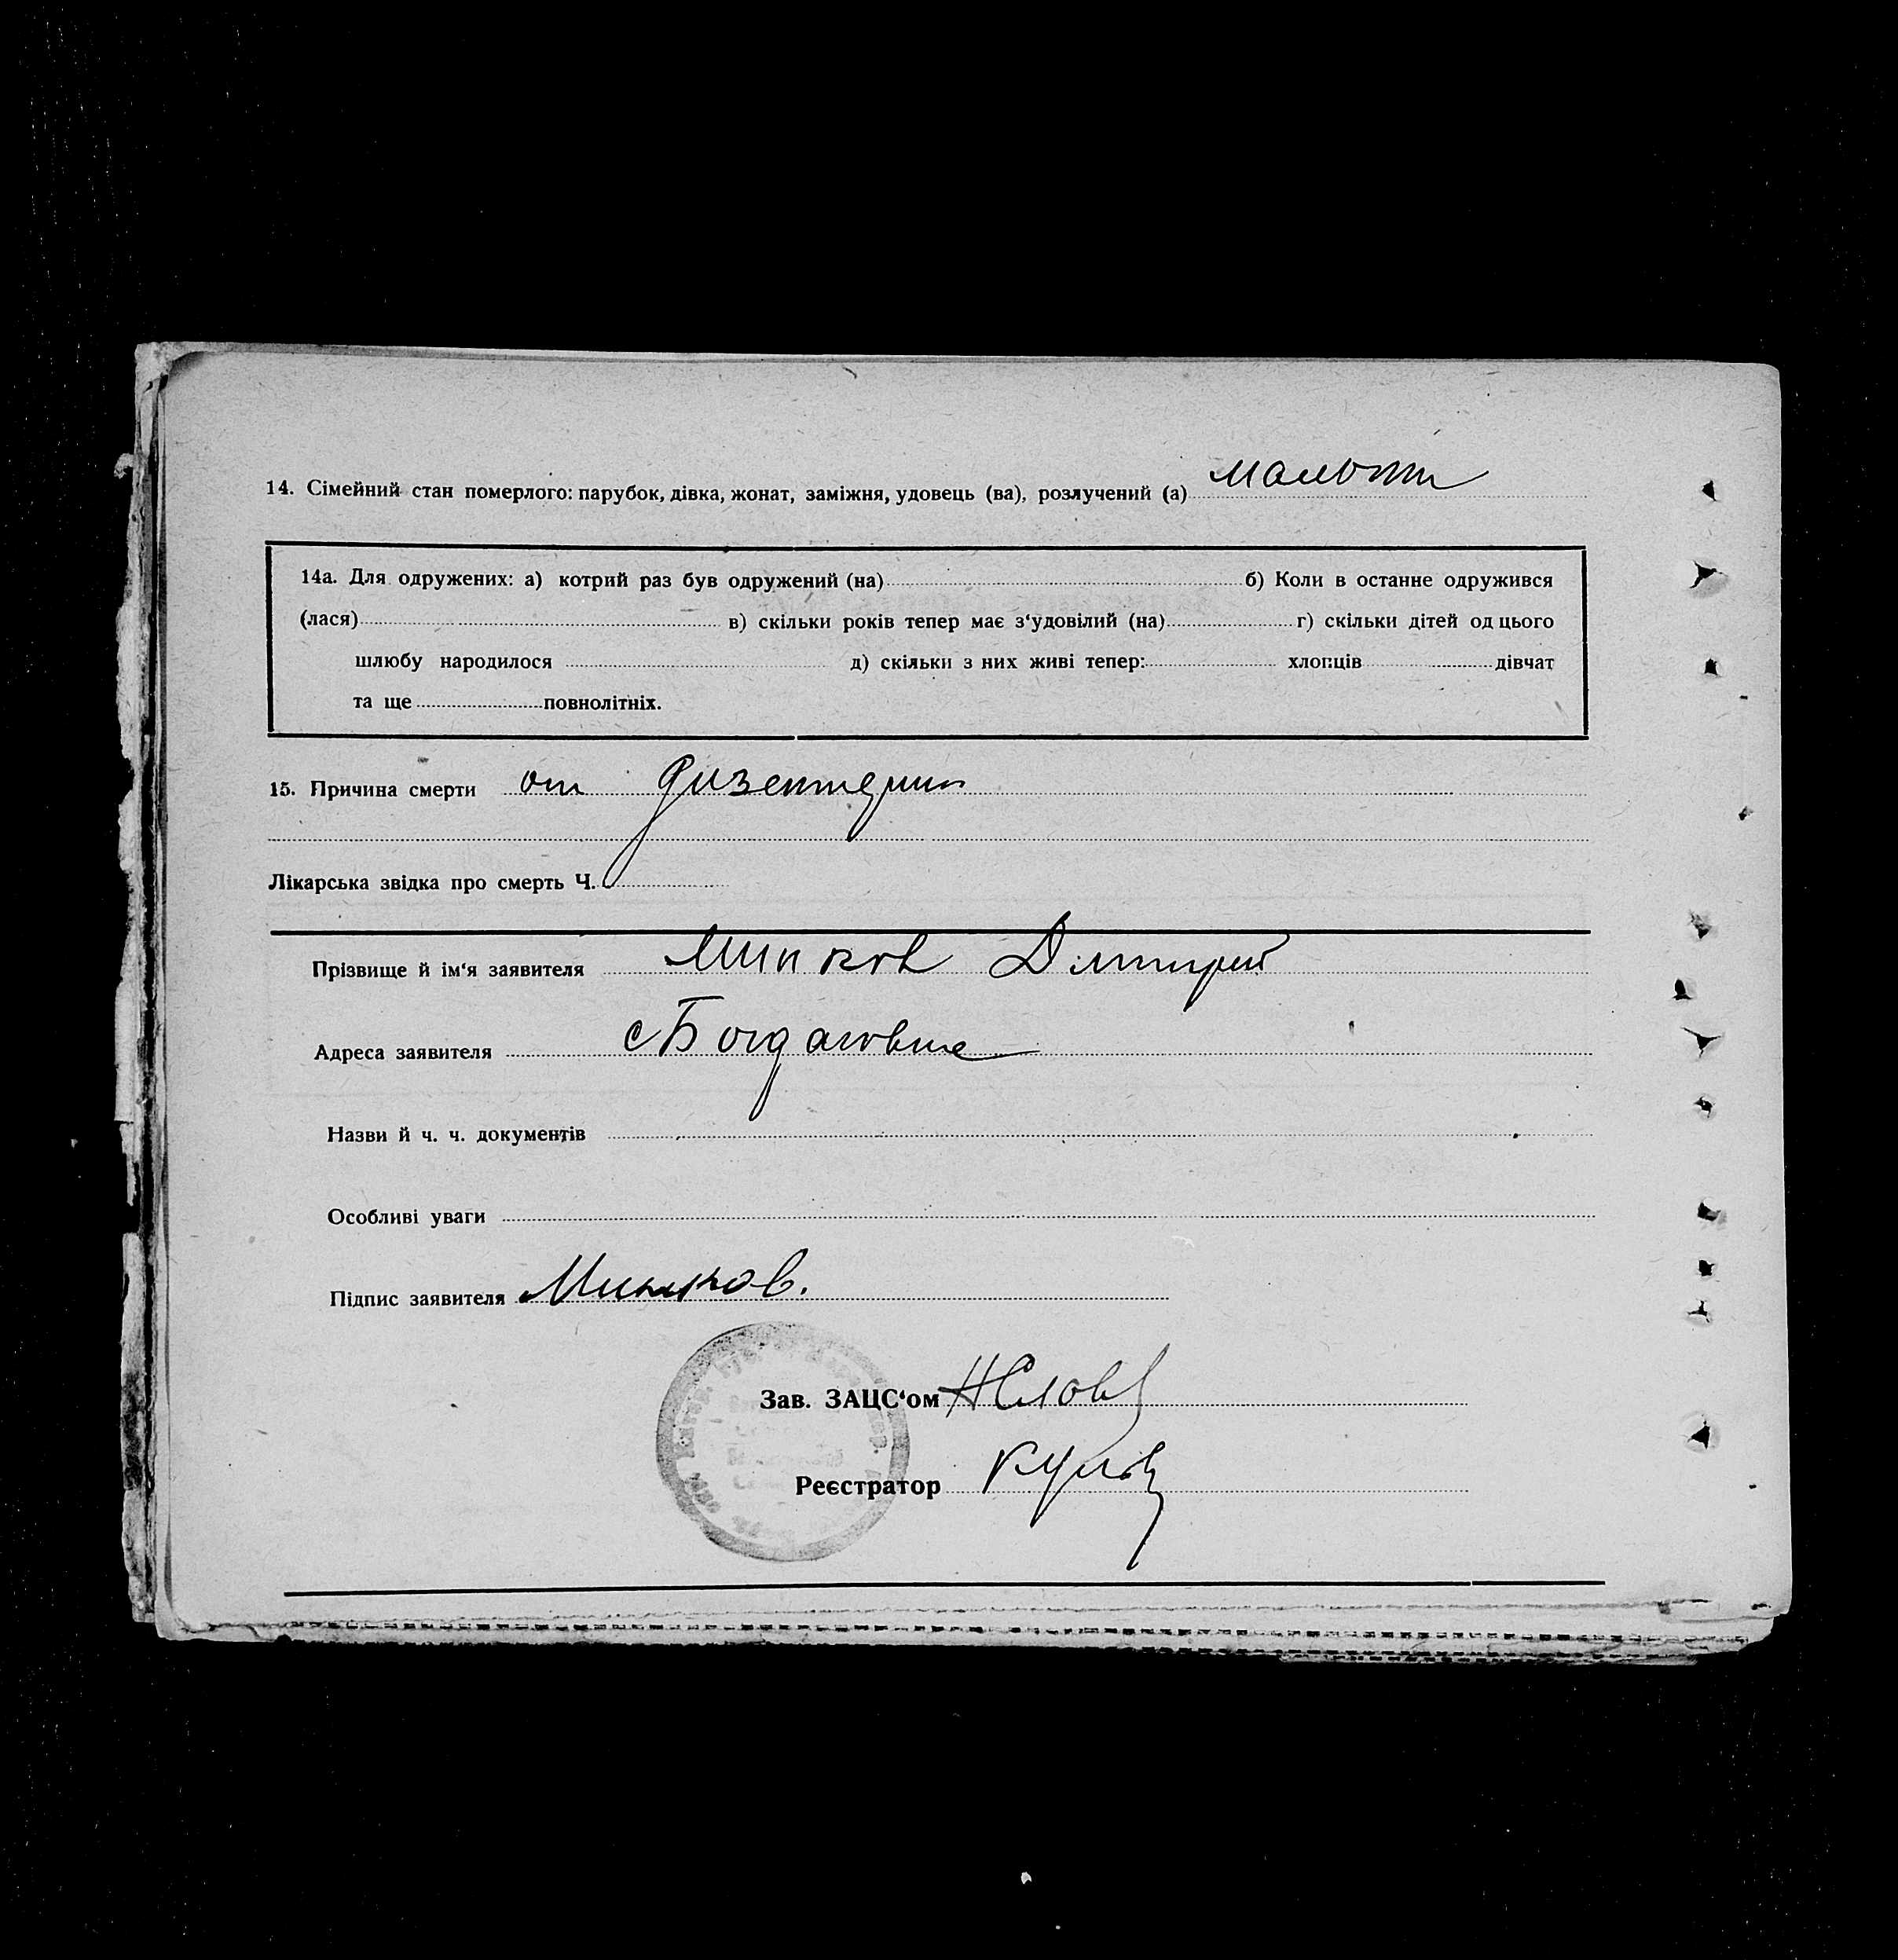 14. Сімейний стан померлого: парубок, дівка, жонат, заміжня, удовець (ва), розлучений (а)
14а. Для одружених: а) котрий раз був одружений (на) б) Коли в останне одружився
(лася) в) скільки років тепер має з‘удовілий (на) г) скільки дітей од цього
шлюбу народилося д) скільки з них живі тепер: хлопців дівчат
та ще повнолітніх.
15. Причина смерти от дизентерии
Лікарська звідка про смерть Ч.
Прізвище й ім‘я заявителя Минков Дмитрий
Адреса заявителя с Богдановка
Назви й ч. ч. документів
Особливі уваги
Підпис заявителя Минков.
Зав. ЗАЦС‘ом
Реєстратор